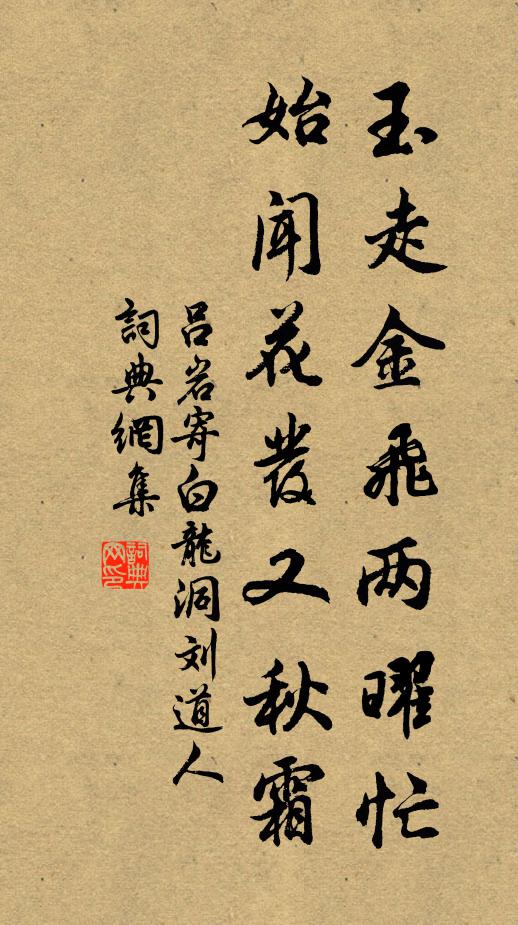 玉走金飛两曜忙
始闻花發又秋霜
吕岩寄白龍洞刘道人
詞典網集
詞典网印